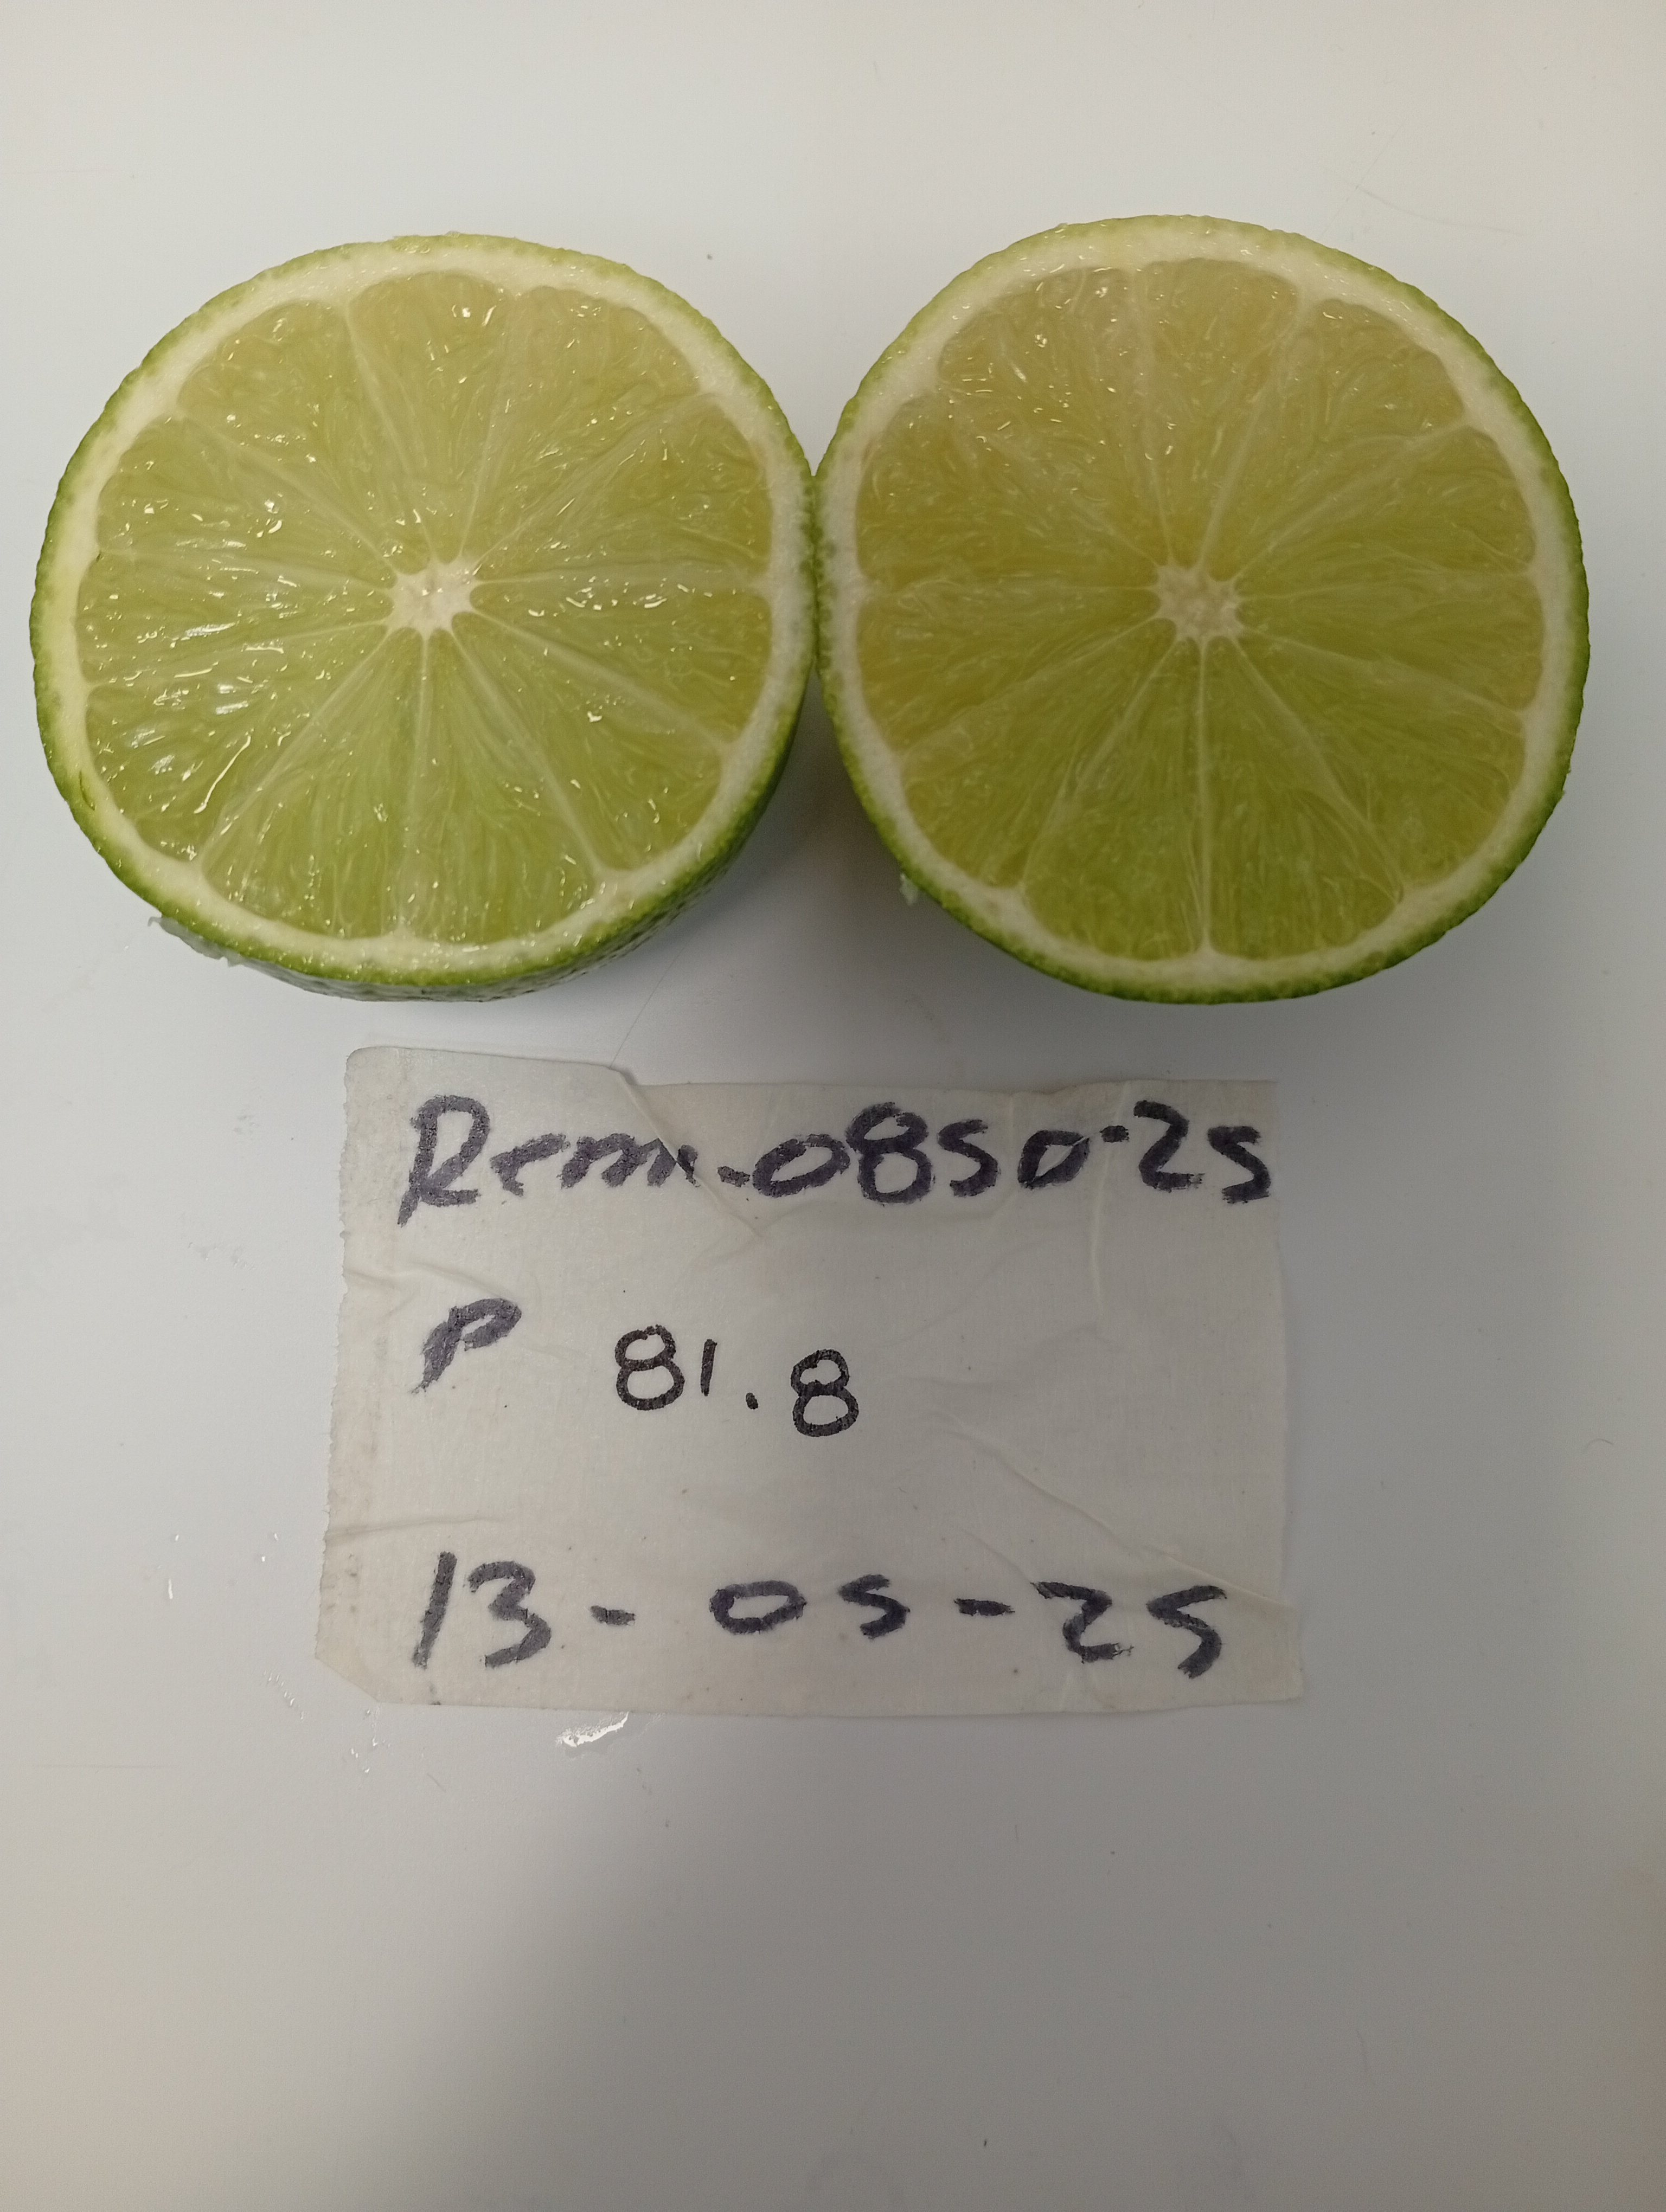 Rem-0850-25
P 81.8
13-05-25